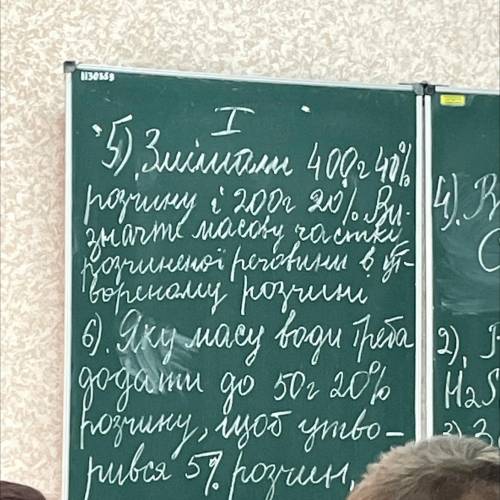 1130259
I
5). Змішали 400г 40%
розчину і 200г 20%. Ви-
значте масову частку
розчиненої речовини в ут-
вореному розчині
6). Яку масу води треба
додати до 50г 20%
розчину, щоб утво-
рився 5% розчин,
4). В
2).
H2S
3). З